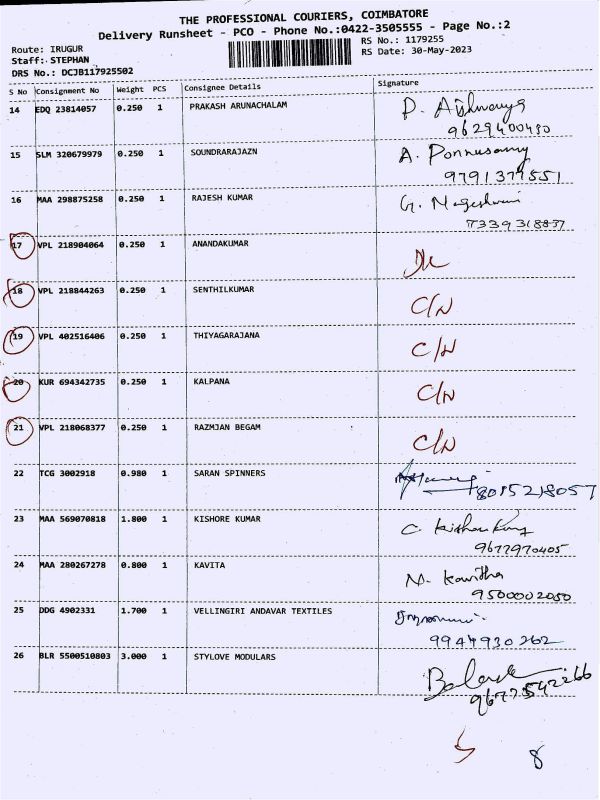 THE PROFESSIONAL COURIERS, COIMBATORE
Delivery Runsheet - PCO - Phone No.:0422-3505555 - Page No.:2
Route: IRUGUR
RS No.: 1179255
Staff: STEPHAN
RS Date: 30-May-2023
DRS No.: DCJB117925502
S No Consignment No Weight PCS Consignee Details Signature
14 EDQ 23814057 0.250 1 PRAKASH ARUNACHALAM P. Aishwarya
9629400430
15 SLM 320679979 0.250 1 SOUNDRARAJAZN A. Ponnusamy
9791377551
16 MAA 298875258 0.250 1 RAJESH KUMAR G. Nageshwari
7339318837
17 VPL 218904064 0.250 1 ANANDAKUMAR
18 VPL 218844263 0.250 1 SENTHILKUMAR C/N
19 VPL 402516406 0.250 1 THIYAGARAJANA C/N
20 KUR 694342735 0.250 1 KALPANA C/N
21 VPL 218068377 0.250 1 RAZMJAN BEGAM C/N
22 TCG 3002918 0.980 1 SARAN SPINNERS 8015218057
23 MAA 569070818 1.800 1 KISHORE KUMAR C. Kishore Kumar
9677970405
24 MAA 280267278 0.800 1 KAVITA N. Kavitha
9500002050
25 DDG 4902331 1.700 1 VELLINGIRI ANDAVAR TEXTILES
9944930262
26 BLR 5500510803 3.000 1 STYLOVE MODULARS
9677542266
5 8